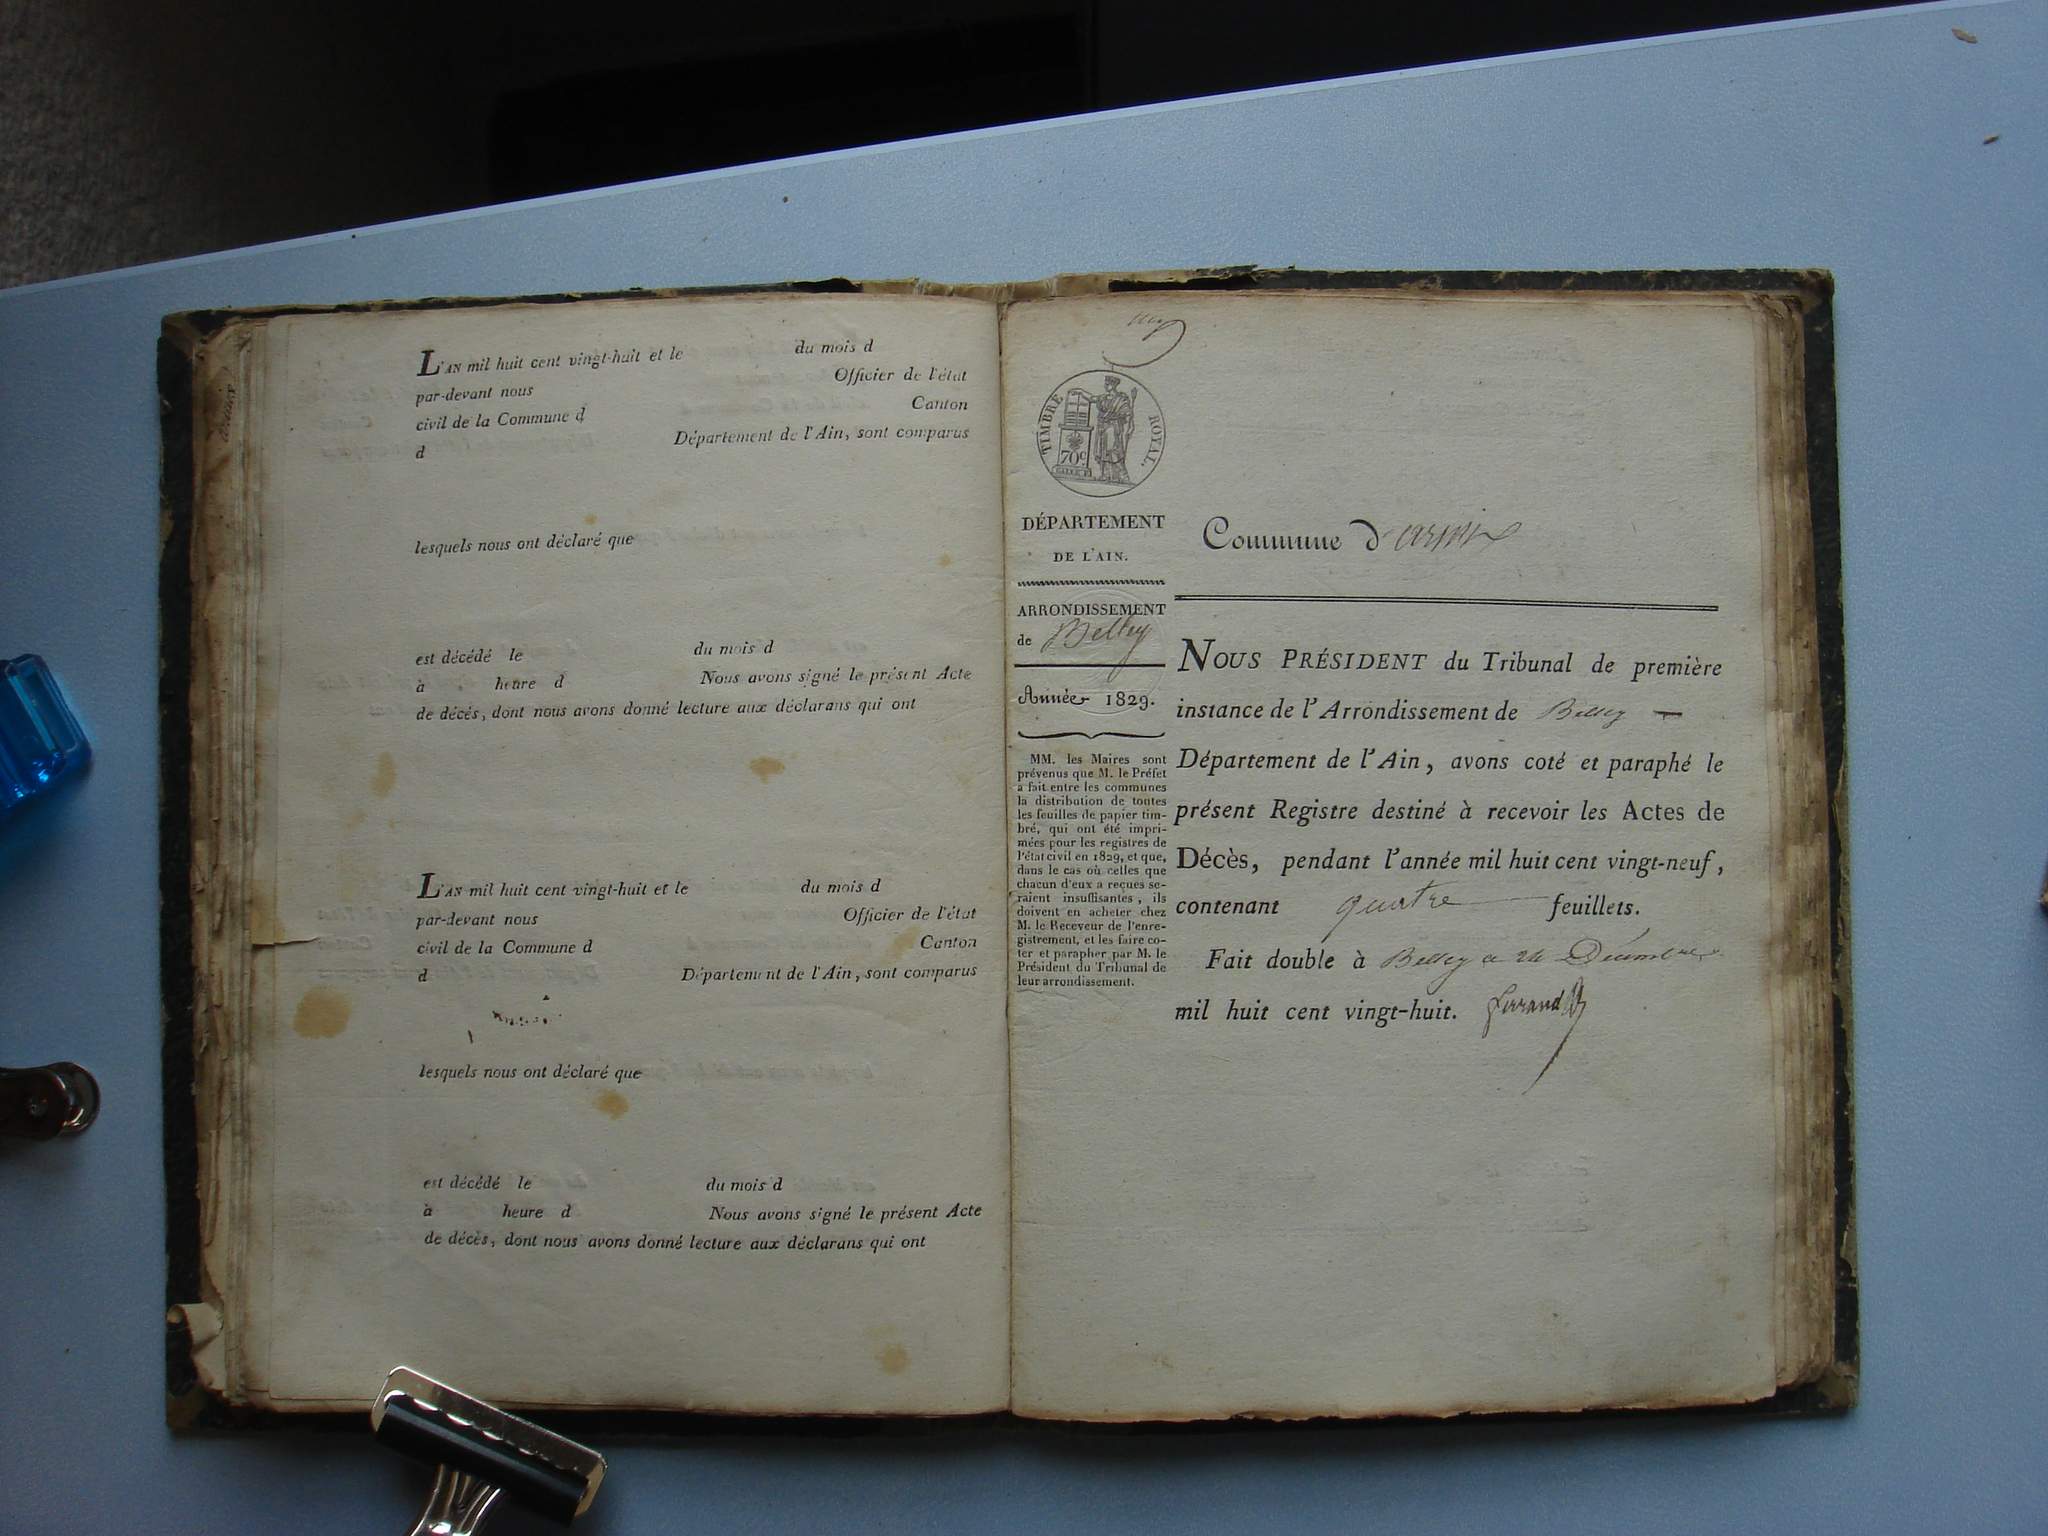 L'AN mil huit cent vingt-huit et le du mois d
par-devant nous Officier de l'état
civil de la Commune d Canton
d Département de l'Ain, sont comparus
lesquels nous ont déclaré que
est décédé le du mois d
à heure d Nous avons signé le présent Acte
de décès, dont nous avons donné lecture aux déclarans qui ont
L'AN mil huit cent vingt-huit et le du mois d
par-devant nous Officier de l'état
civil de la Commune d Canton
d Département de l'Ain, sont comparus
lesquels nous ont déclaré que
est décédé le du mois d
à heure d Nous avons signé le présent Acte
de décès, dont nous avons donné lecture aux déclarans qui ont
TIMBRE ROYAL.
70c
DÉPARTEMENT
DE L'AIN.
ARRONDISSEMENT
de Belley
Année 1829.
MM. les Maires sont
prévenus que M. le Préfet
a fait entre les communes
la distribution de toutes
les feuilles de papier tim-
bré, qui ont été impri-
mées pour les registres de
l'état civil en 1829, et que,
dans le cas où celles que
chacun d'eux a reçues se-
raient insuffisantes, ils
doivent en acheter chez
M. le Receveur de l'enre-
gistrement, et les faire co-
ter et parapher par M. le
Président du Tribunal de
leur arrondissement.
Commune d'arnix
NOUS PRÉSIDENT du Tribunal de première
instance de l'Arrondissement de Belley
Département de l'Ain, avons coté et paraphé le
présent Registre destiné à recevoir les Actes de
Décès, pendant l'année mil huit cent vingt-neuf,
contenant quatre feuillets.
Fait double à Belley ce 24 Décembre
mil huit cent vingt-huit. Ferrand